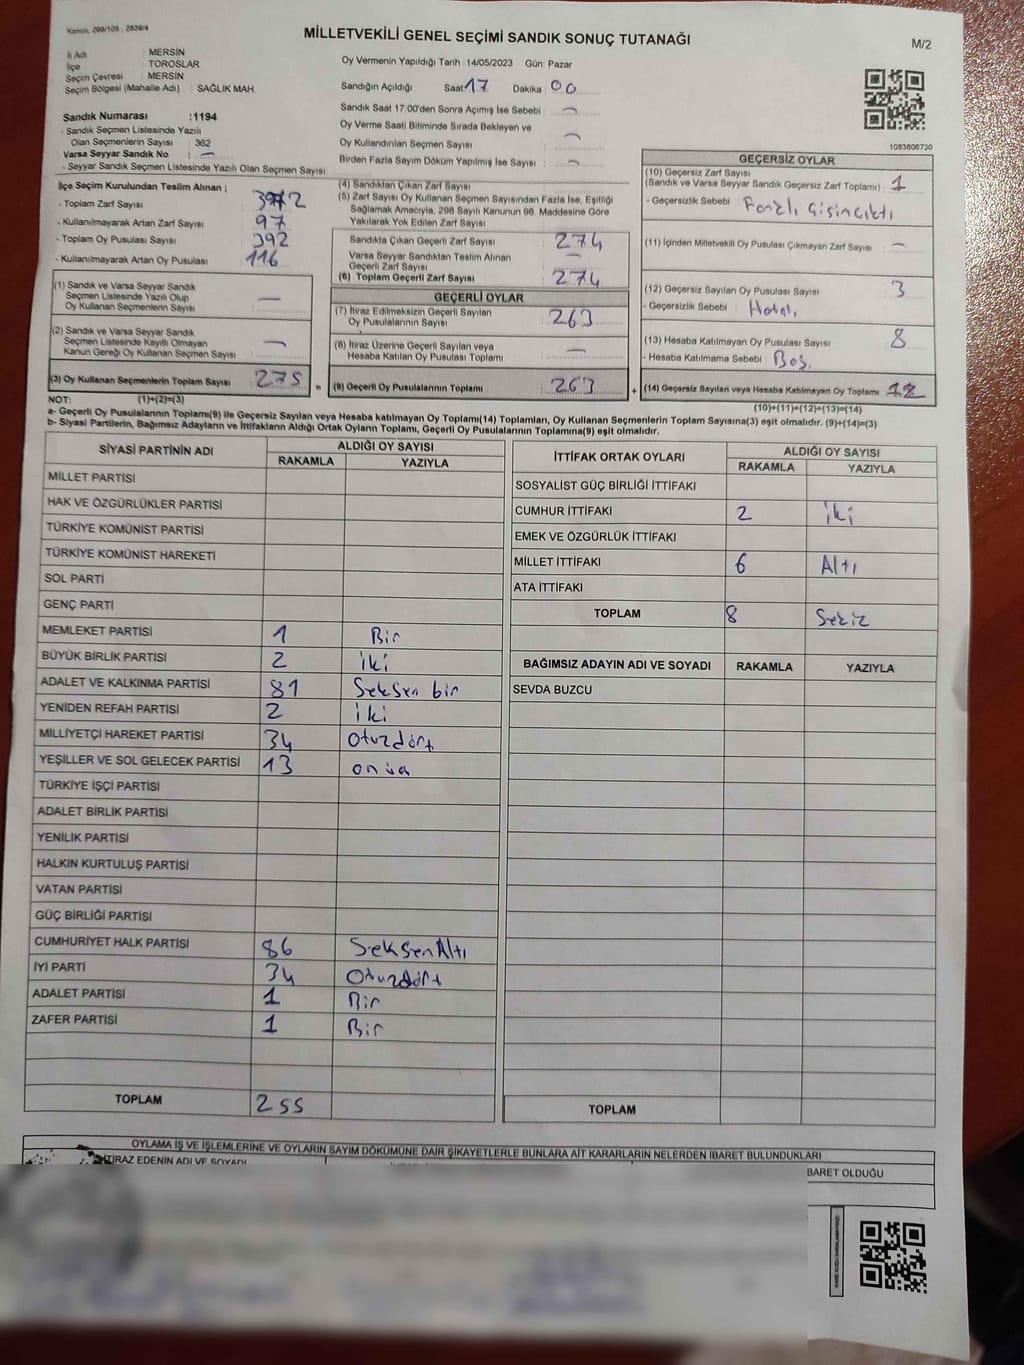 Kanun, 298/105 , 2839/4
MİLLETVEKİLİ GENEL SEÇİMİ SANDIK SONUÇ TUTANAĞI
M/2
İl Adı : MERSİN
İlçe : TOROSLAR
Seçim Çevresi : MERSİN
Seçim Bölgesi (Mahalle Adı) : SAĞLIK MAH.
Oy Vermenin Yapıldığı Tarih : 14/05/2023 Gün: Pazar
Sandığın Açıldığı Saat 17 Dakika : 00
Sandık Saat 17:00'den Sonra Açımış İse Sebebi : —
Oy Verme Saati Bitiminde Sırada Bekleyen ve
Oy Kullandırılan Seçmen Sayısı : —
Birden Fazla Sayım Döküm Yapılmış İse Sayısı : —
Sandık Numarası :1194
- Sandık Seçmen Listesinde Yazılı
Olan Seçmenlerin Sayısı : 362
Varsa Seyyar Sandık No : —
- Seyyar Sandık Seçmen Listesinde Yazılı Olan Seçmen Sayısı:
1083806730
İlçe Seçim Kurulundan Teslim Alınan ;
- Toplam Zarf Sayısı :
- Kullanılmayarak Artan Zarf Sayısı : 97
- Toplam Oy Pusulası Sayısı : 392
- Kullanılmayarak Artan Oy Pusulası : 116
(1) Sandık ve Varsa Seyyar Sandık
Seçmen Listesinde Yazılı Olup
Oy Kullanan Seçmenlerin Sayısı : —
(2) Sandık ve Varsa Seyyar Sandık
Seçmen Listesinde Kayıtlı Olmayan
Kanun Gereği Oy Kullanan Seçmen Sayısı : —
(3) Oy Kullanan Seçmenlerin Toplam Sayısı : 275 =
(4) Sandıktan Çıkan Zarf Sayısı :
(5) Zarf Sayısı Oy Kullanan Seçmen Sayısından Fazla İse, Eşitliği
Sağlamak Amacıyla, 298 Sayılı Kanunun 98. Maddesine Göre
Yakılarak Yok Edilen Zarf Sayısı :
Sandıkta Çıkan Geçerli Zarf Sayısı : 274
Varsa Seyyar Sandıktan Teslim Alınan
Geçerli Zarf Sayısı : —
(6) Toplam Geçerli Zarf Sayısı : 274
GEÇERLİ OYLAR
(7) İtiraz Edilmeksizin Geçerli Sayılan
Oy Pusulalarının Sayısı : 263
(8) İtiraz Üzerine Geçerli Sayılan veya
Hesaba Katılan Oy Pusulası Toplamı : —
(9) Geçerli Oy Pusulalarının Toplamı : 263 +
GEÇERSİZ OYLAR
(10) Geçersiz Zarf Sayısı
(Sandık ve Varsa Seyyar Sandık Geçersiz Zarf Toplamı) : 1
- Geçersizlik Sebebi :
(11) İçinden Milletvekili Oy Pusulası Çıkmayan Zarf Sayısı : —
(12) Geçersiz Sayılan Oy Pusulası Sayısı : 3
- Geçersizlik Sebebi : Hatalı
(13) Hesaba Katılmayan Oy Pusulası Sayısı : 8
- Hesaba Katılmama Sebebi : Boş.
(14) Geçersiz Sayılan veya Hesaba Katılmayan Oy Toplamı : 12
NOT: (1)+(2)=(3)
(10)+(11)+(12)+(13)=(14)
a- Geçerli Oy Pusulalarının Toplamı(9) ile Geçersiz Sayılan veya Hesaba katılmayan Oy Toplamı(14) Toplamları, Oy Kullanan Seçmenlerin Toplam Sayısına(3) eşit olmalıdır. (9)+(14)=(3)
b- Siyasi Partilerin, Bağımsız Adayların ve İttifakların Aldığı Ortak Oyların Toplamı, Geçerli Oy Pusulalarının Toplamına(9) eşit olmalıdır.
SİYASİ PARTİNİN ADI ALDIĞI OY SAYISI
RAKAMLA YAZIYLA
MİLLET PARTİSİ
HAK VE ÖZGÜRLÜKLER PARTİSİ
TÜRKİYE KOMÜNİST PARTİSİ
TÜRKİYE KOMÜNİST HAREKETİ
SOL PARTİ
GENÇ PARTİ
MEMLEKET PARTİSİ 1 Bir
BÜYÜK BİRLİK PARTİSİ 2 iki
ADALET VE KALKINMA PARTİSİ 81 Seksen bir
YENİDEN REFAH PARTİSİ 2 iki
MİLLİYETÇİ HAREKET PARTİSİ 34 Otuzdört
YEŞİLLER VE SOL GELECEK PARTİSİ 13 onüç
TÜRKİYE İŞÇİ PARTİSİ
ADALET BİRLİK PARTİSİ
YENİLİK PARTİSİ
HALKIN KURTULUŞ PARTİSİ
VATAN PARTİSİ
GÜÇ BİRLİĞİ PARTİSİ
CUMHURİYET HALK PARTİSİ 86 SeksenAltı
İYİ PARTİ 34 Otuzdört
ADALET PARTİSİ 1 Bir
ZAFER PARTİSİ 1 Bir
TOPLAM 255
İTTİFAK ORTAK OYLARI ALDIĞI OY SAYISI
RAKAMLA YAZIYLA
SOSYALİST GÜÇ BİRLİĞİ İTTİFAKI
CUMHUR İTTİFAKI 2 iki
EMEK VE ÖZGÜRLÜK İTTİFAKI
MİLLET İTTİFAKI 6 Altı
ATA İTTİFAKI
TOPLAM 8 Sekiz
BAĞIMSIZ ADAYIN ADI VE SOYADI RAKAMLA YAZIYLA
SEVDA BUZCU
TOPLAM
OYLAMA İŞ VE İŞLEMLERİNE VE OYLARIN SAYIM DÖKÜMÜNE DAİR ŞİKAYETLERLE BUNLARA AİT KARARLARIN NELERDEN İBARET BULUNDUKLARI
İTİRAZ EDENİN ADI VE SOYADI
BARET OLDUĞU